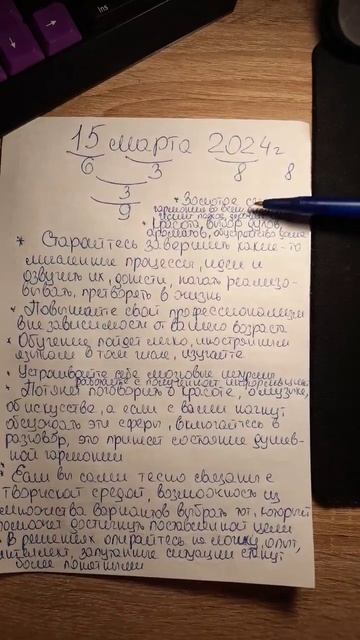 15 марта 2024г
6 3 8 8
3
9
* Золотое
гармония во всём
* Красота, выбор духов,
ароматов, обустройство дома
* Старайтесь завершить какие-то
мысленные процессы, идеи и
озвучить их, донести, начать реализо-
вывать, претворять в жизнь
* Повышайте свой профессионализм
вне зависимости от вашего возраста
* Обучение пойдёт легко, иностранным
языкам в том числе, изучайте
* Устраивайте себе мозговые штурмы
работайте с полученной информацией
* Потянет поговорить о красоте, о музыке,
об искусстве, а если с вами начнут
обсуждать эти сферы, включайтесь в
разговор, это принесёт состояние душев-
ной гармонии
* Если вы сами тесно связаны с
творческой средой, возможность из
множества вариантов выбрать тот, который
поможет достигнуть поставленной цели
* В решениях опирайтесь на логику, опыт,
интеллект, запутанные ситуации станут
более понятными